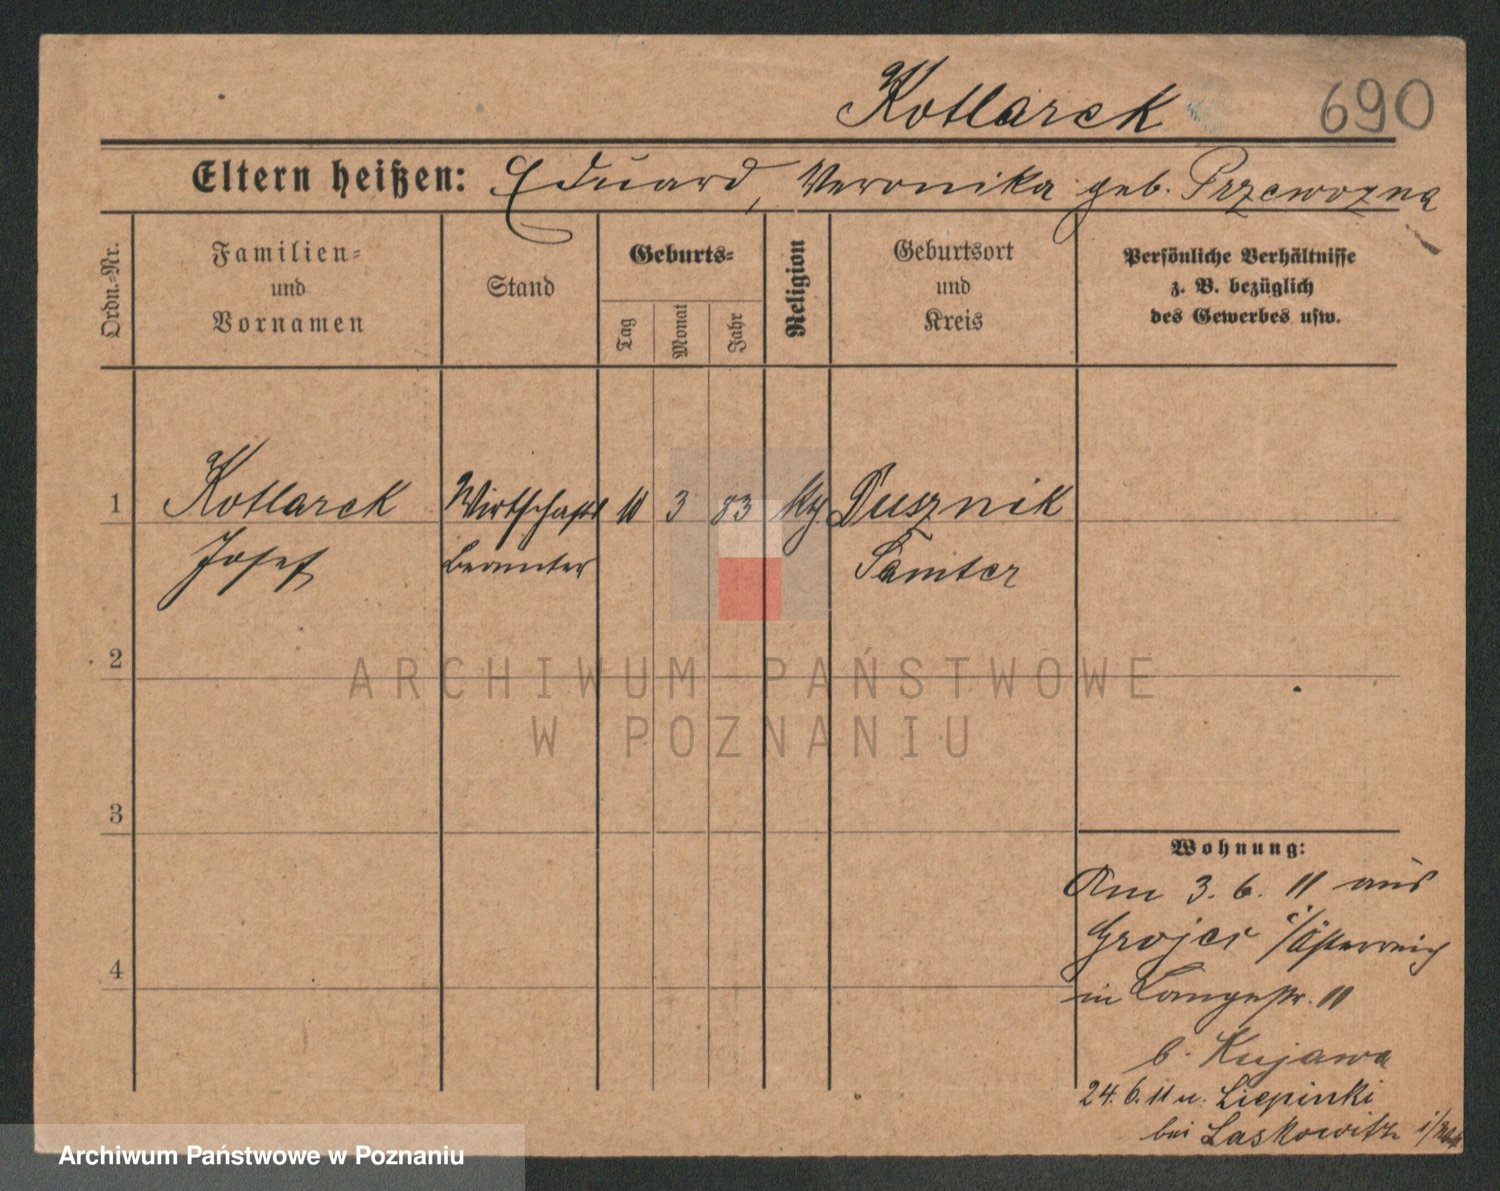 Kotlarek 690
Eltern heißen: Eduard, Veronika geb. Przewozna
Ordn.-Nr.
Familien-
und
Vornamen
Stand
Geburts-
Tag
Monat
Jahr
Religion
Geburtsort
und
Kreis
Persönliche Verhältnisse
z. B. bezüglich
des Gewerbes usw.
1 Kotlarek Wirtschafts 10 3 83 Dusznik
Josef beamter Samter
2
ARCHIWUM PAŃSTWOWE
W POZNANIU
3
Wohnung:
Am 3. 6. 11 aus
Grojec i/Österreich
4
in Langestr. 11
b. Kujawa
24. 6. 11 n. Liepinki
bei Laskowitz
Archiwum Państwowe w Poznaniu